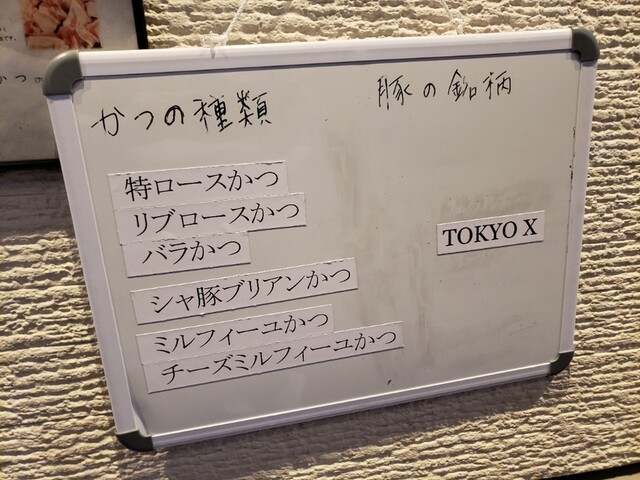 かつの種類
豚の銘柄
特ロースかつ
リブロースかつ
バラかつ
TOKYO X
シャ豚ブリアンかつ
ミルフィーユかつ
チーズミルフィーユかつ